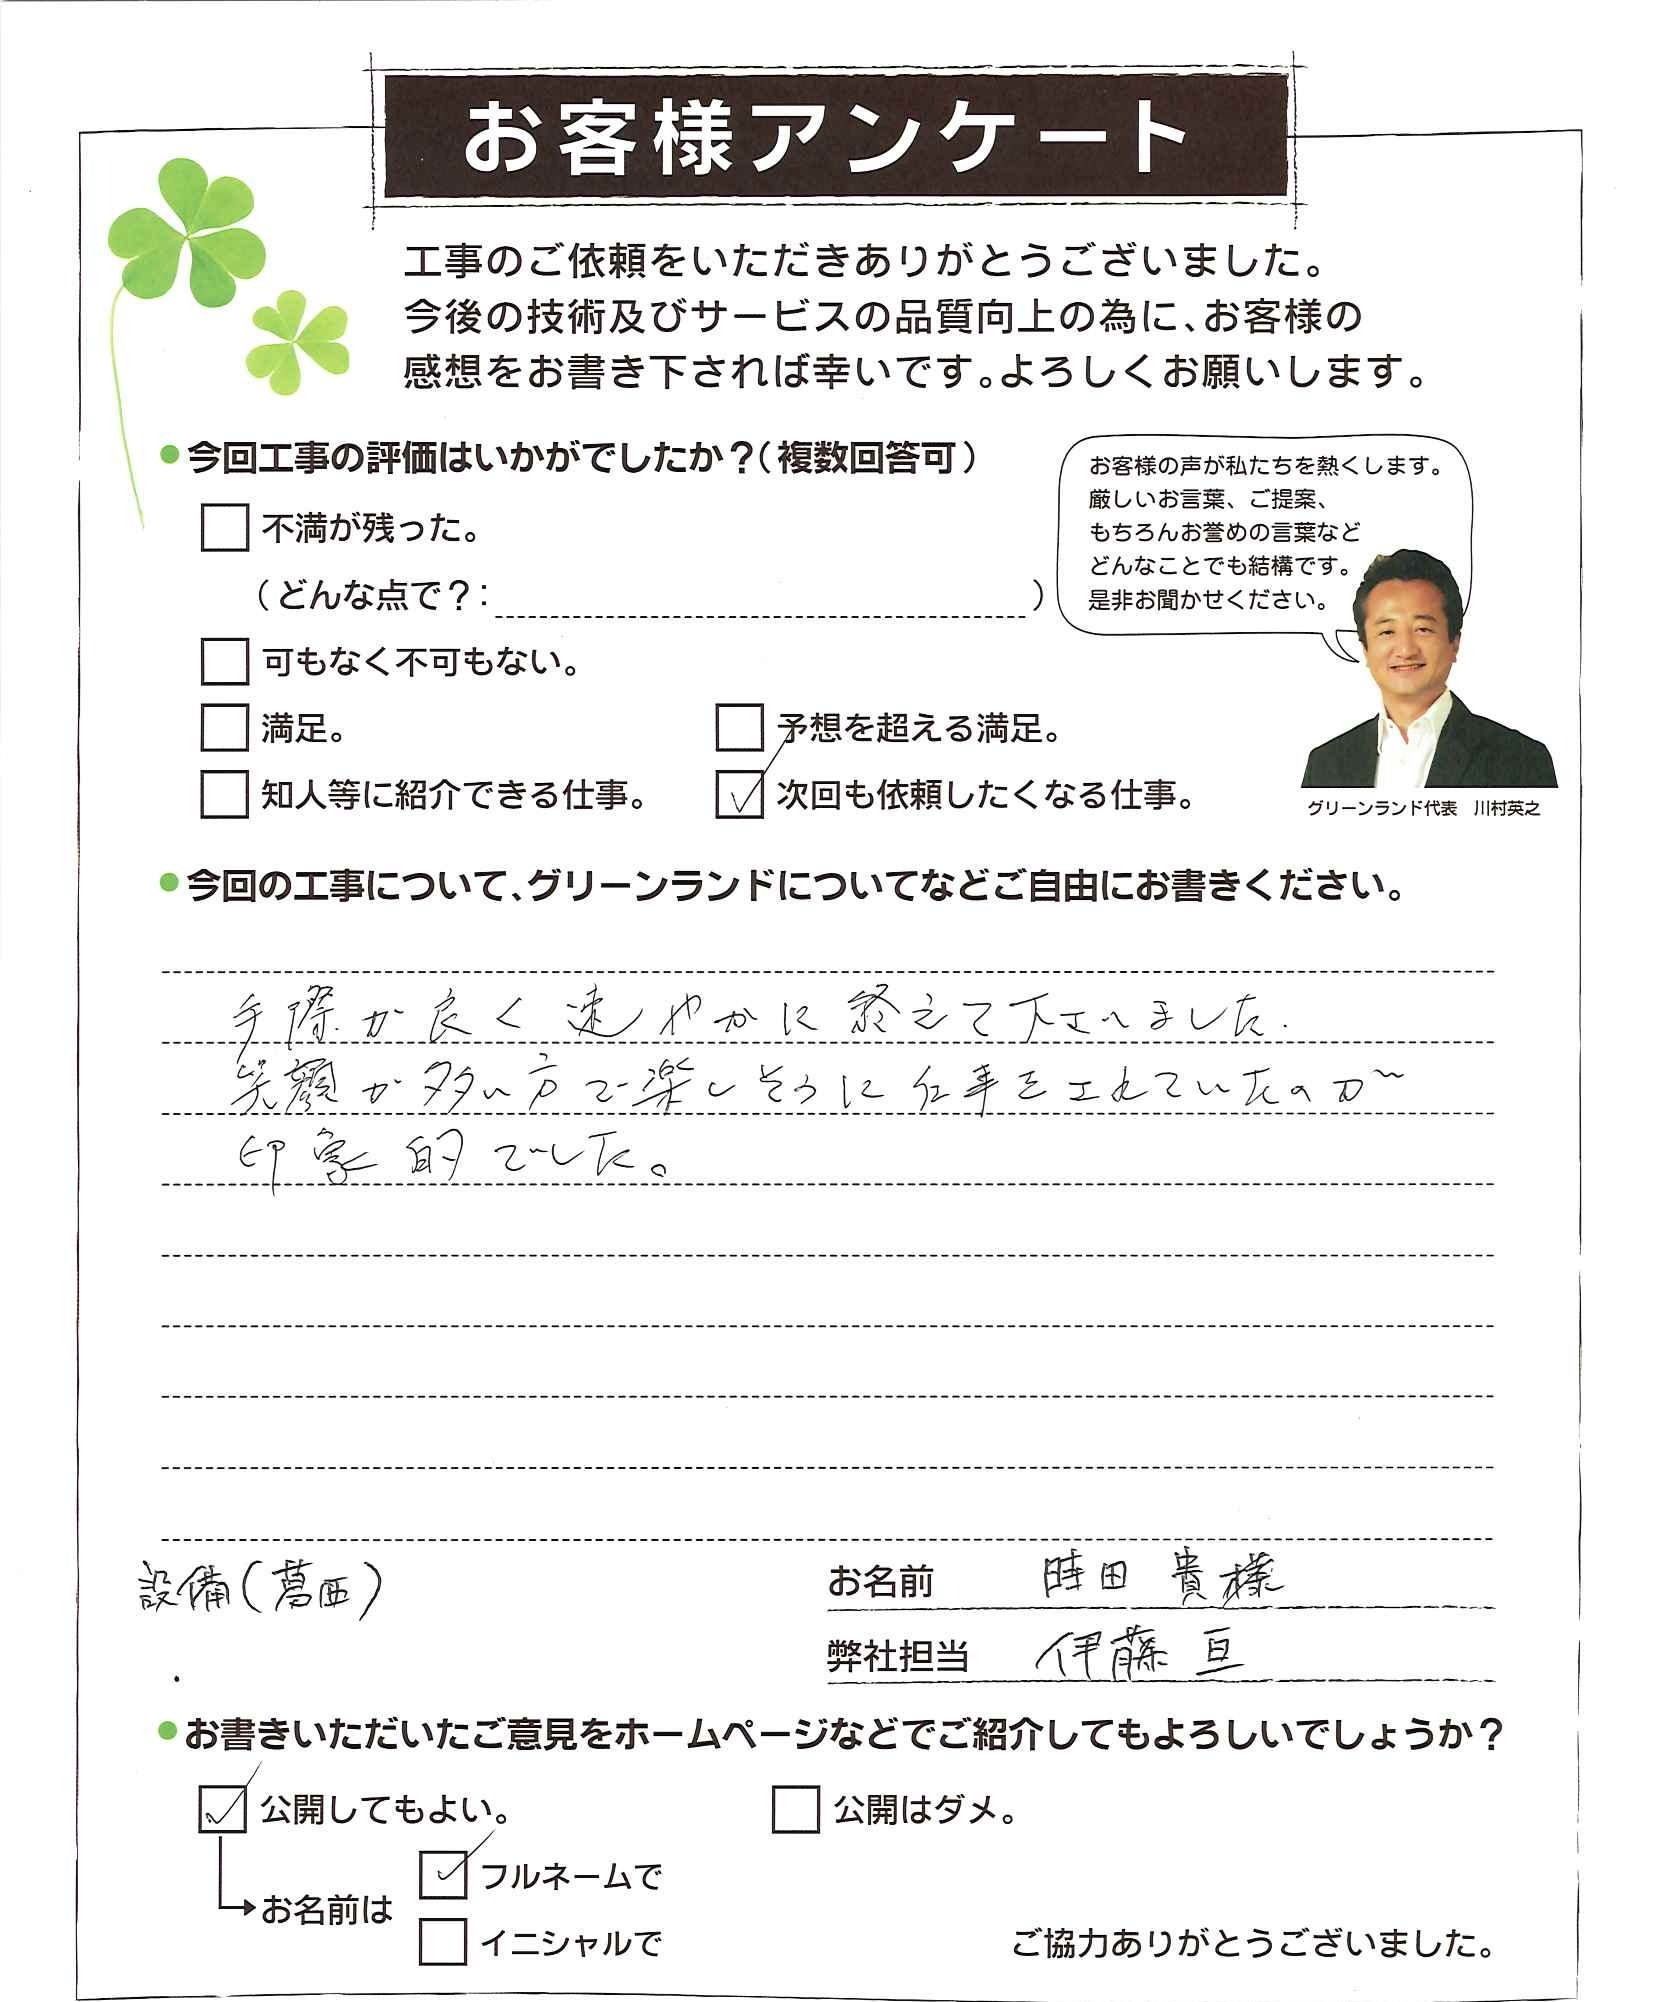 お客様アンケート
工事のご依頼をいただきありがとうございました。
今後の技術及びサービスの品質向上の為に、お客様の
感想をお書き下されば幸いです。よろしくお願いします。
●今回工事の評価はいかがでしたか？（複数回答可）
不満が残った。
（どんな点で？：　）
可もなく不可もない。
満足。
予想を超える満足。
知人等に紹介できる仕事。
次回も依頼したくなる仕事。
お客様の声が私たちを熱くします。
厳しいお言葉、ご提案、
もちろんお誉めの言葉など
どんなことでも結構です。
是非お聞かせください。
グリーンランド代表　川村英之
●今回の工事について、グリーンランドについてなどご自由にお書きください。
手際が良く速やかに終えて下さいました.
笑顔が多い方で楽しそうに仕事をされていたのが
印象的でした。
設備(葛西)
お名前 時田 貴様
弊社担当 伊藤 亘
●お書きいただいたご意見をホームページなどでご紹介してもよろしいでしょうか？
公開してもよい。
公開はダメ。
お名前は
フルネームで
イニシャルで
ご協力ありがとうございました。